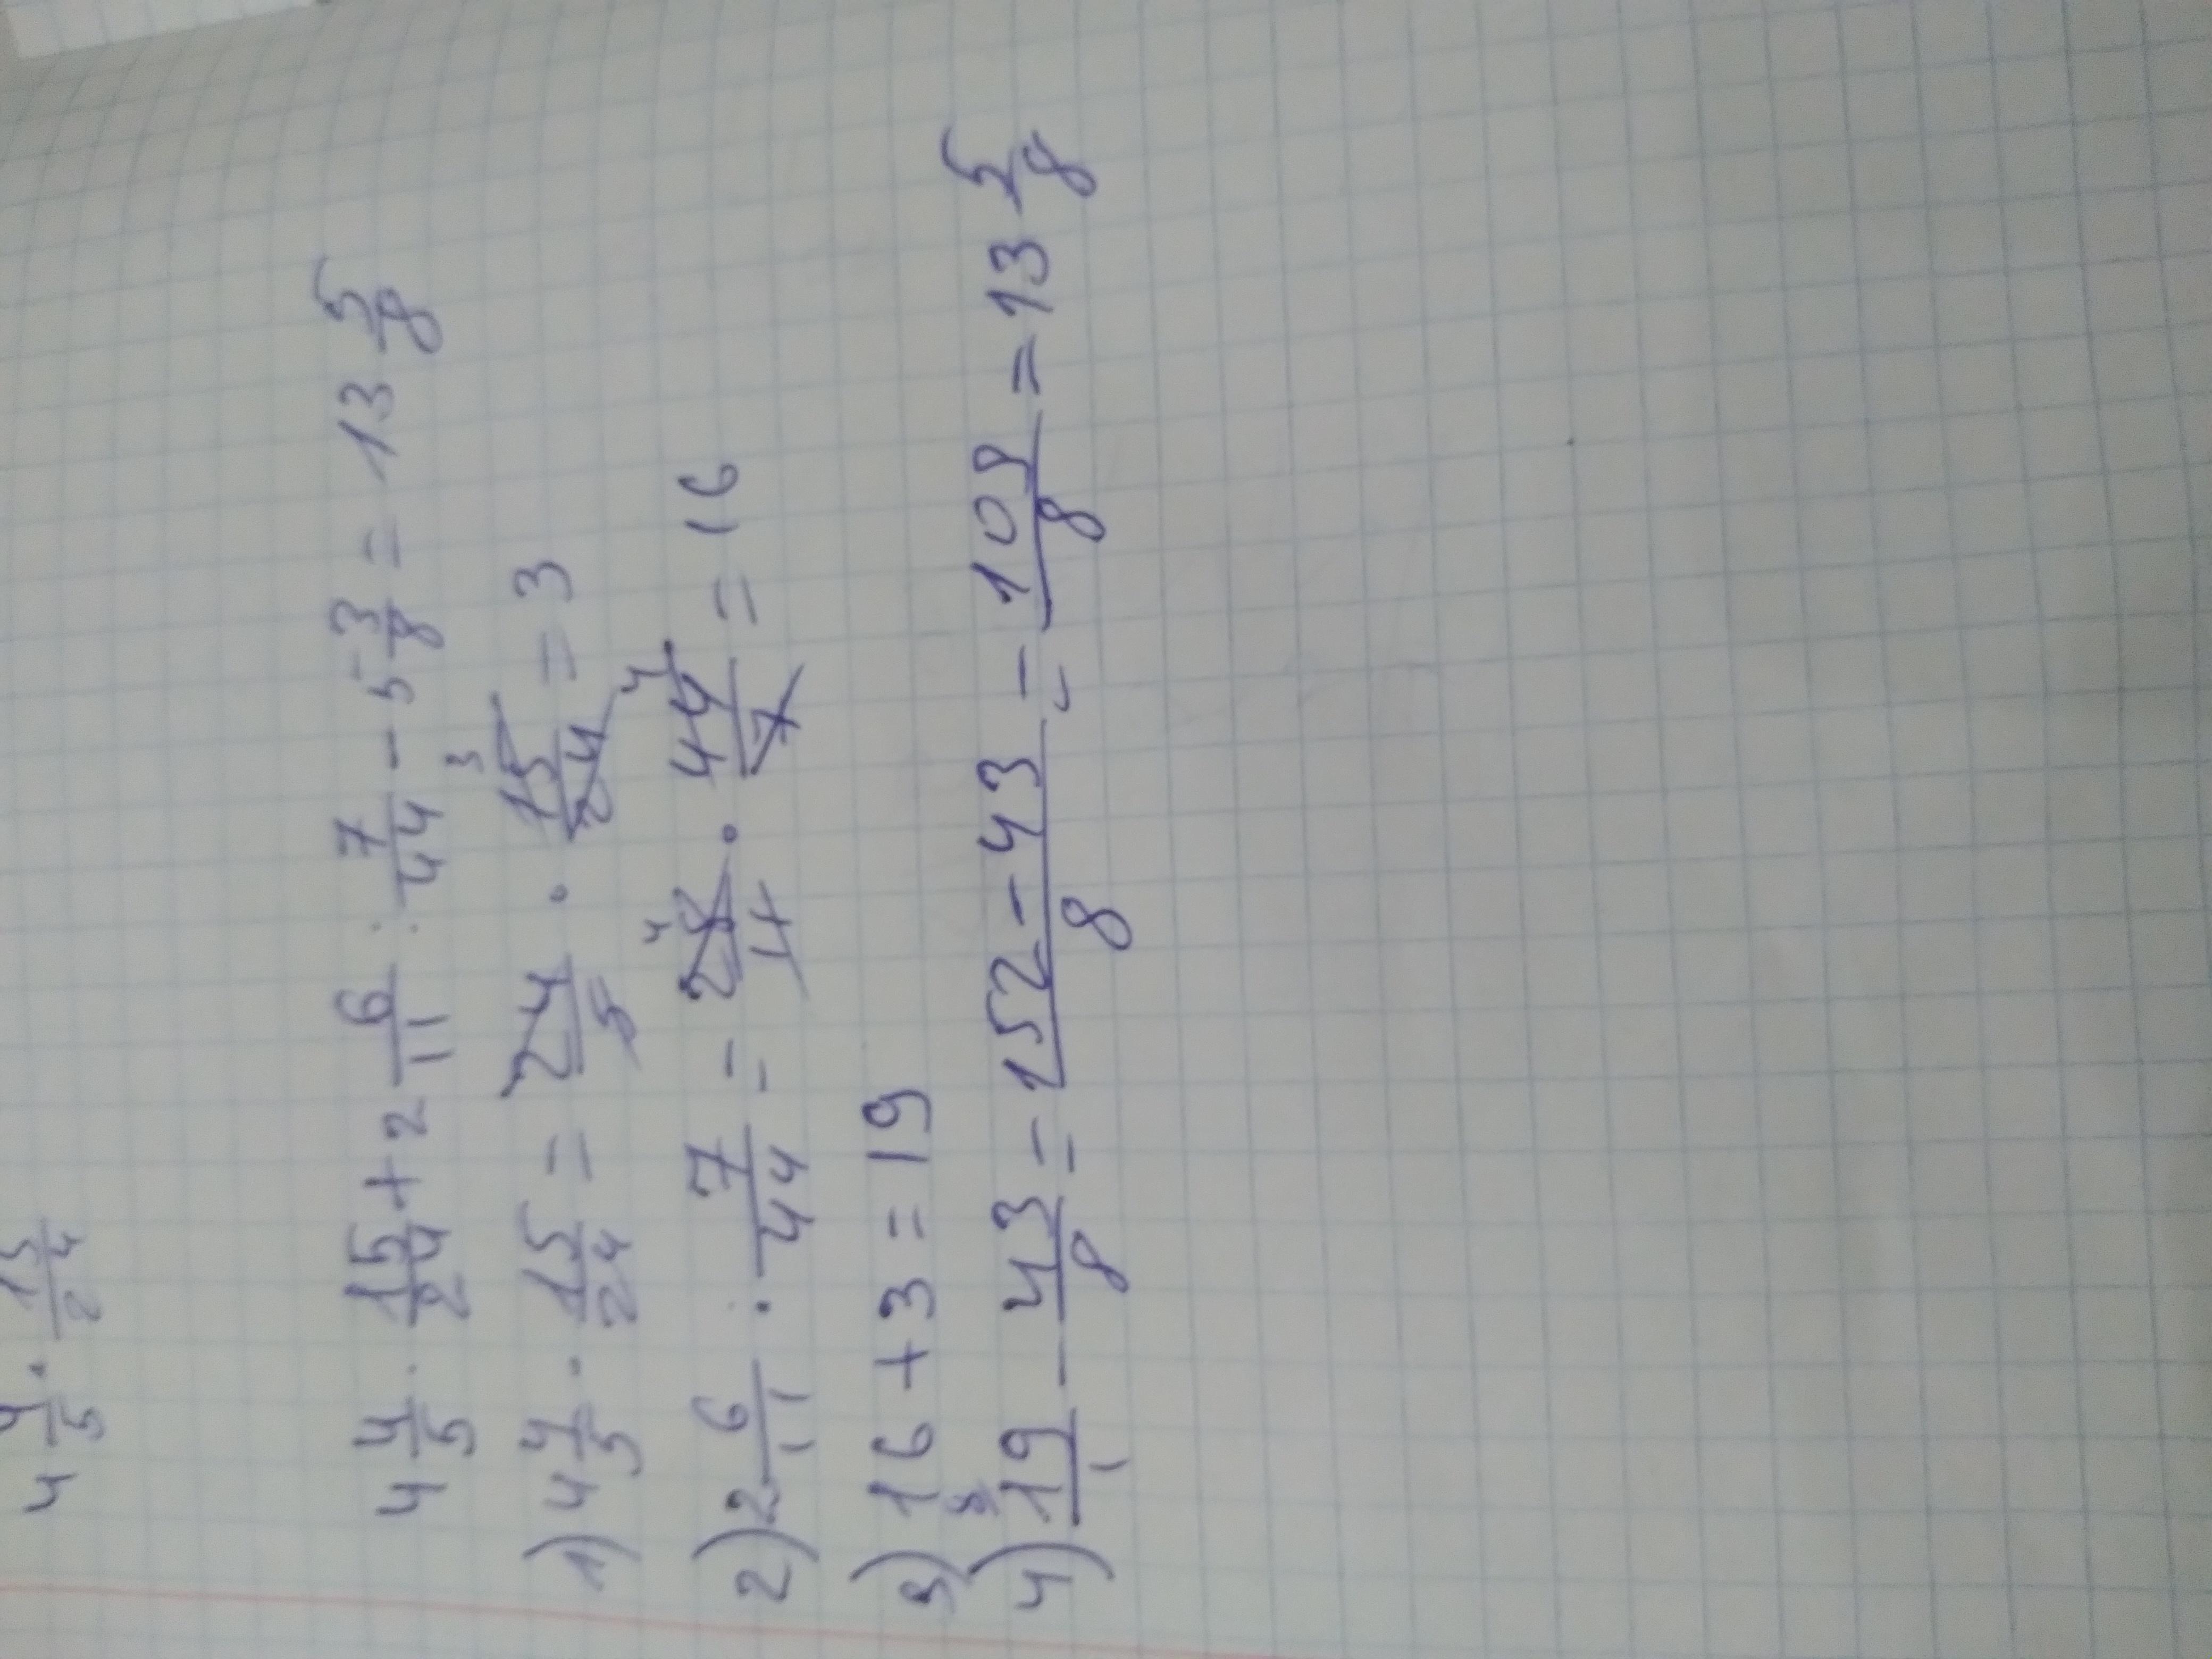 4 4/5 · 15/24
4 4/5 · 15/24 + 2 6/11 : 7/44 - 5 3/8 = 13 5/8
1) 4 4/5 · 15/24 = 24/5 · 15/24 = 3
2) 2 6/11 : 7/44 = 28/11 · 44/7 = 16
3) 16 + 3 = 19
4) 19/1 - 43/8 = 152-43/8 = 109/8 = 13 5/8